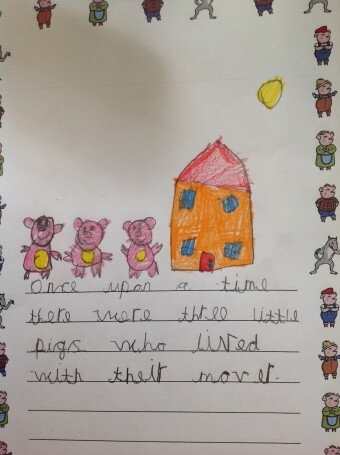 Once upon a time
there were three little
pigs who lived
with their mover.